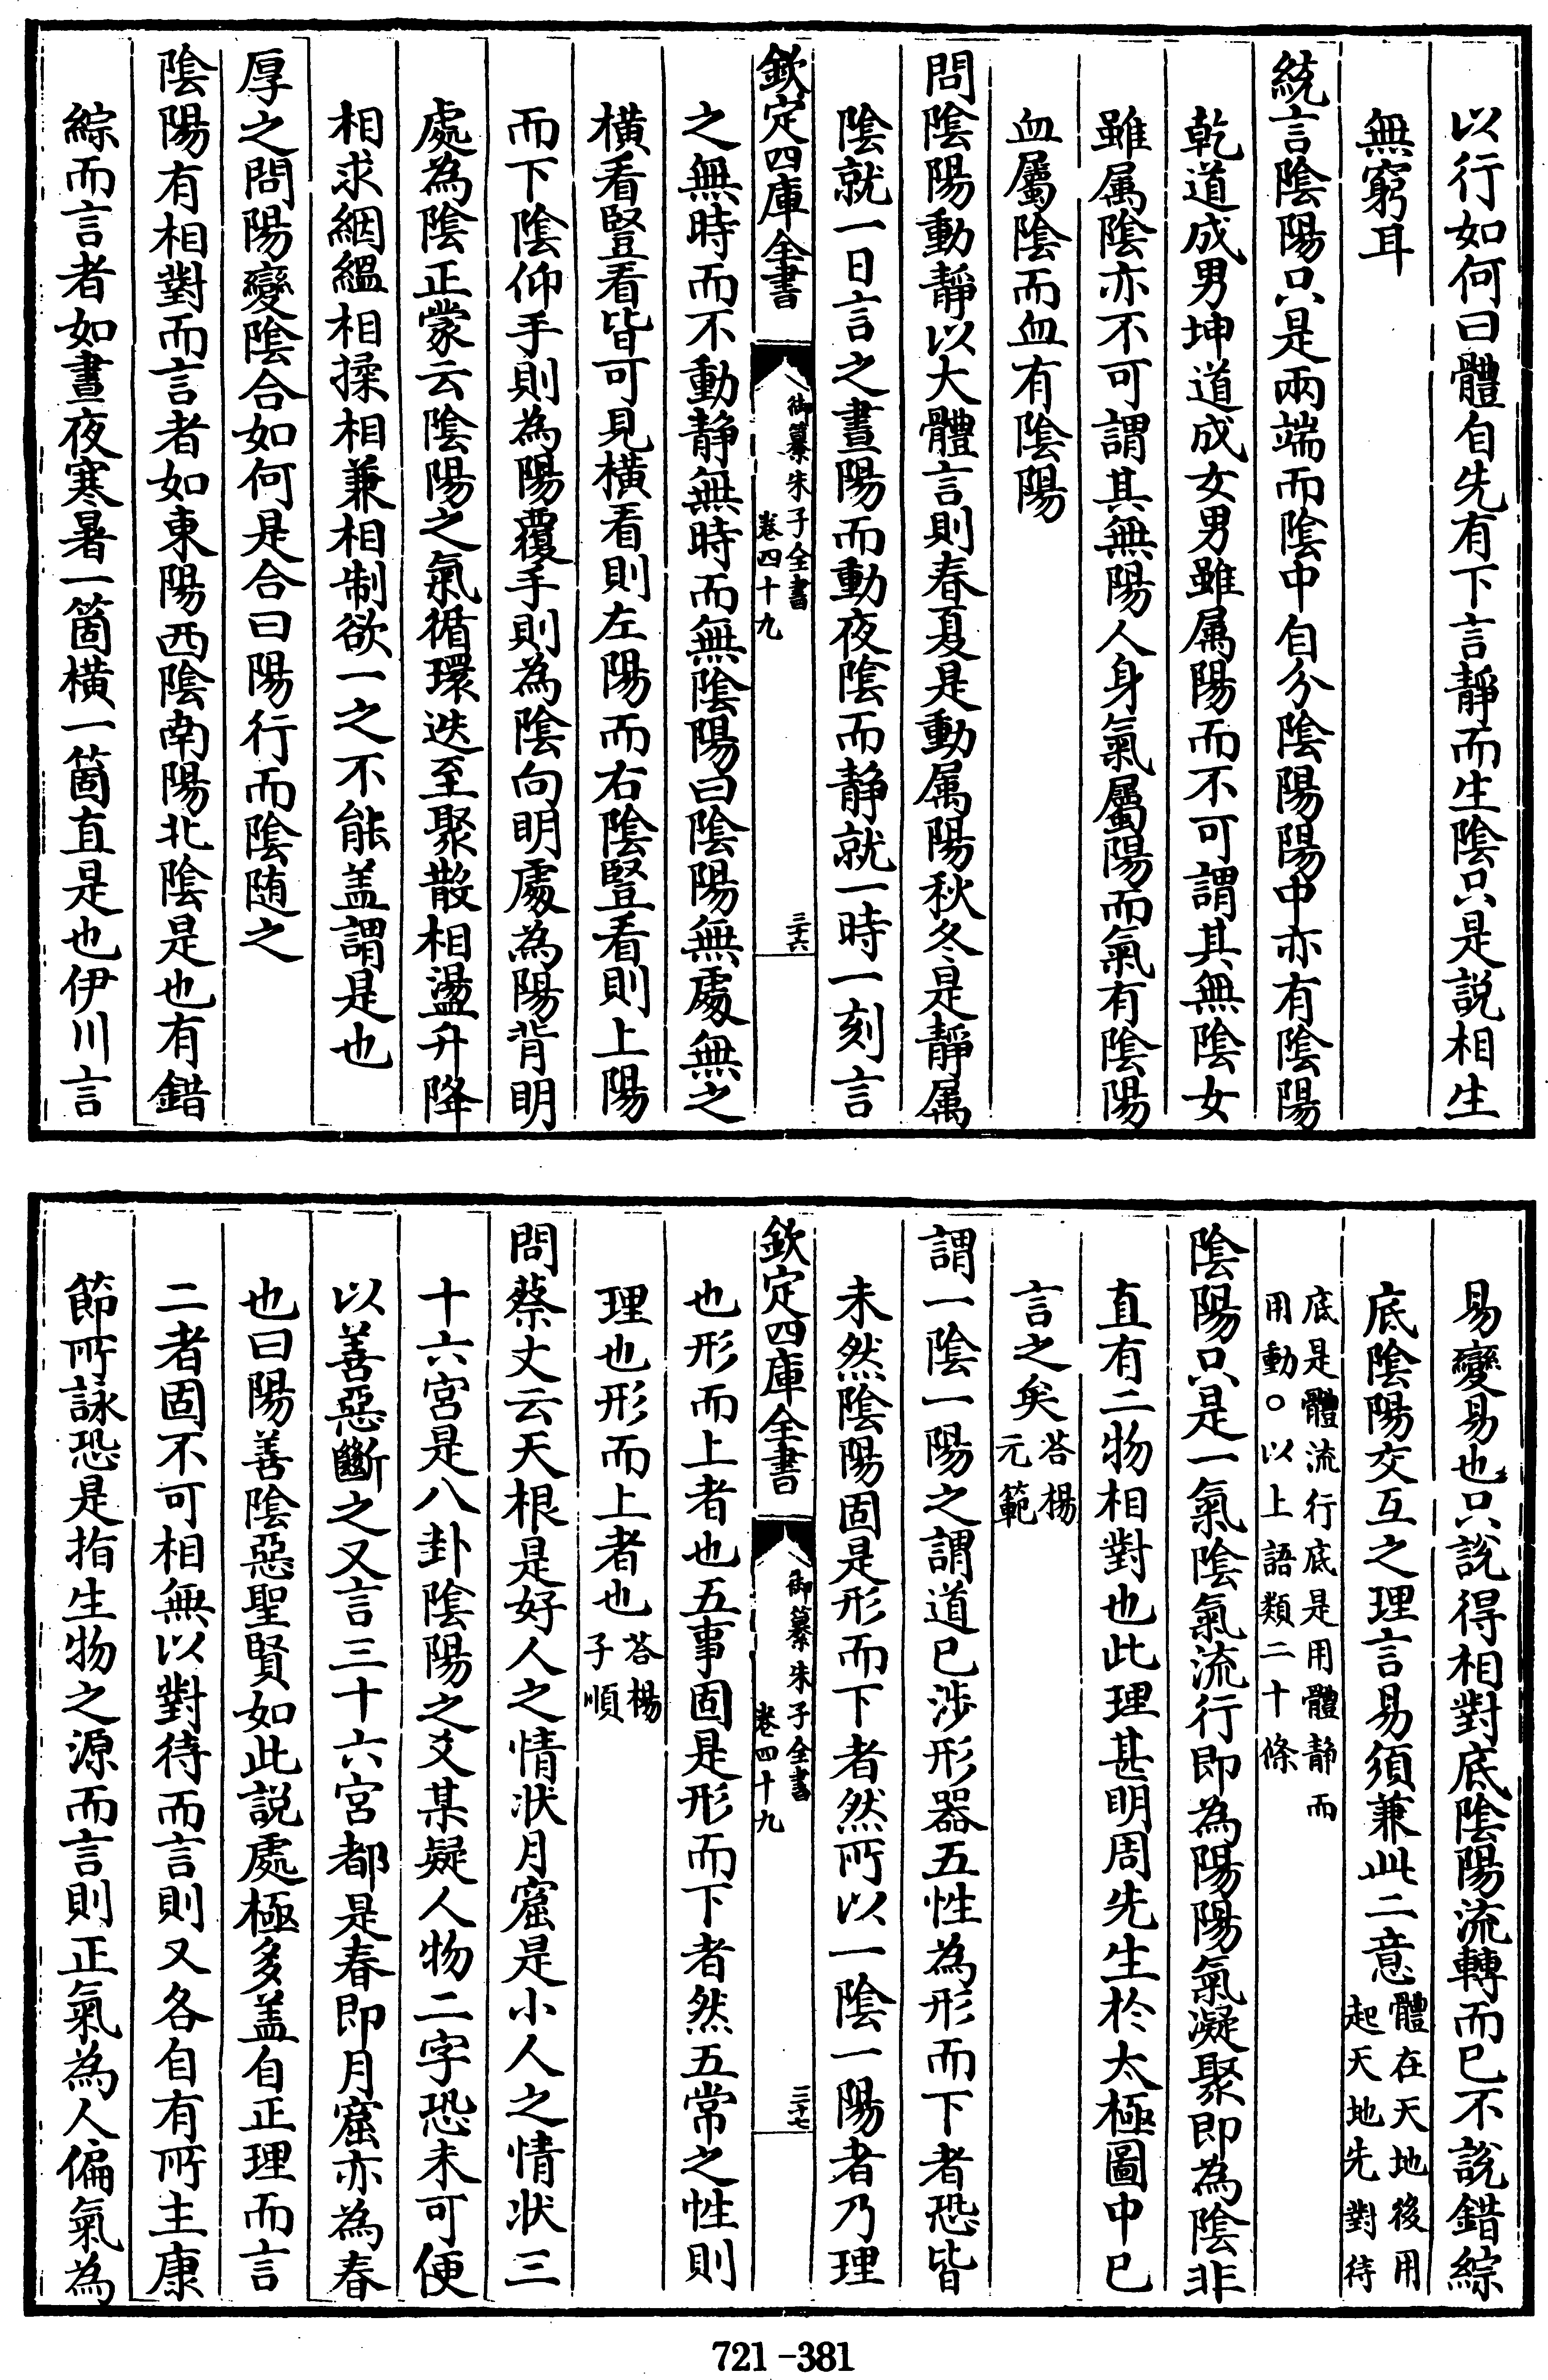 以行如何曰體自先有下言靜而生陰只是説相生
無窮耳
統言陰陽只是兩端而陰中自分陰陽陽中亦有陰陽
乾道成男坤道成女男雖属陽而不可謂其無陰女
雖属陰亦不可謂其無陽人身氣屬陽而氣有陰陽
血屬陰而血有陰陽
問陰陽動靜以大體言則春夏是動属陽秋冬是靜属
陰就一日言之晝陽而動夜陰而静就一時一刻言
欽定四庫全書
御纂朱子全書
卷四十九
三十六
之無時而不動静無時而無陰陽曰陰陽無處無之
横看豎看皆可見横看則左陽而右陰豎看則上陽
而下陰仰手則為陽覆手則為陰向明處為陽背明
處為陰正蒙云陰陽之氣循環迭至聚散相盪升降
相求絪緼相揉相兼相制欲一之不能盖謂是也
厚之問陽變陰合如何是合曰陽行而陰随之
陰陽有相對而言者如東陽西陰南陽北陰是也有錯
綜而言者如晝夜寒暑一箇横一箇直是也伊川言
易變易也只説得相對底陰陽流轉而已不説錯綜
底陰陽交互之理言易須兼此二意體在天地後用
起天地先對待
底是體流行底是用體静而
用動○以上語類二十條
陰陽只是一氣陰氣流行即為陽陽氣凝聚即為陰非
直有二物相對也此理甚明周先生於太極圖中已
言之矣荅楊
元範
謂一陰一陽之謂道已涉形器五性為形而下者恐皆
未然陰陽固是形而下者然所以一陰一陽者乃理
欽定四庫全書
御纂朱子全書
卷四十九
三十七
也形而上者也五事固是形而下者然五常之性則
理也形而上者也荅楊
子順
問蔡丈云天根是好人之情状月窟是小人之情状三
十六宮是八卦陰陽之爻某疑人物二字恐未可便
以善惡斷之又言三十六宮都是春即月窟亦為春
也曰陽善陰惡聖賢如此説處極多盖自正理而言
二者固不可相無以對待而言則又各自有所主康
節所詠恐是指生物之源而言則正氣為人偏氣為
721-381